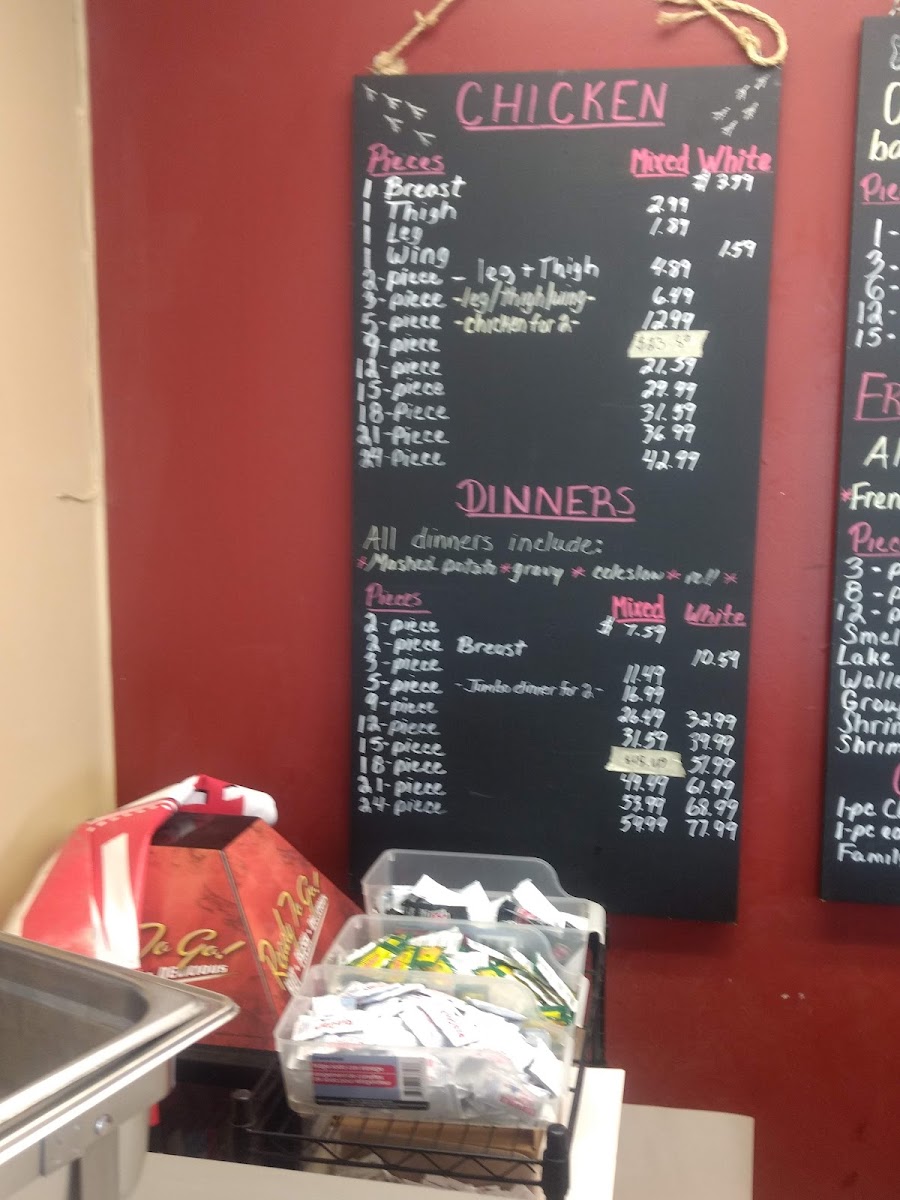 CHICKEN
Pieces Mixed White
1 Breast $3.99
1 Thigh 2.99
1 Leg 1.89
1 Wing 1.59
2-piece - leg + Thigh 4.89
3-piece -leg/thigh/wing- 6.49
5-piece -chicken for 2- 12.99
9-piece
12-piece 21.59
15-piece 29.99
18-Piece 31.59
21-Piece 36.99
24-Piece 42.99
DINNERS
All dinners include:
*Mashed potato *gravy * coleslaw * roll *
Pieces Mixed White
2-piece $ 7.59
2-piece Breast 10.59
3-piece 11.49
5-piece -Jumbo dinner for 2- 16.99
9-piece 26.49 32.99
12-piece 31.59 39.99
15-piece 57.99
18-piece 49.49 61.99
21-piece 53.99 68.99
24-piece 59.99 77.99
1-
3-
6-
12-
15-
*Fren
3-p
8-p
12-p
Lake
Shrim
1-pc
1-pc
To Go!
DELICIOUS
Ready To Go!